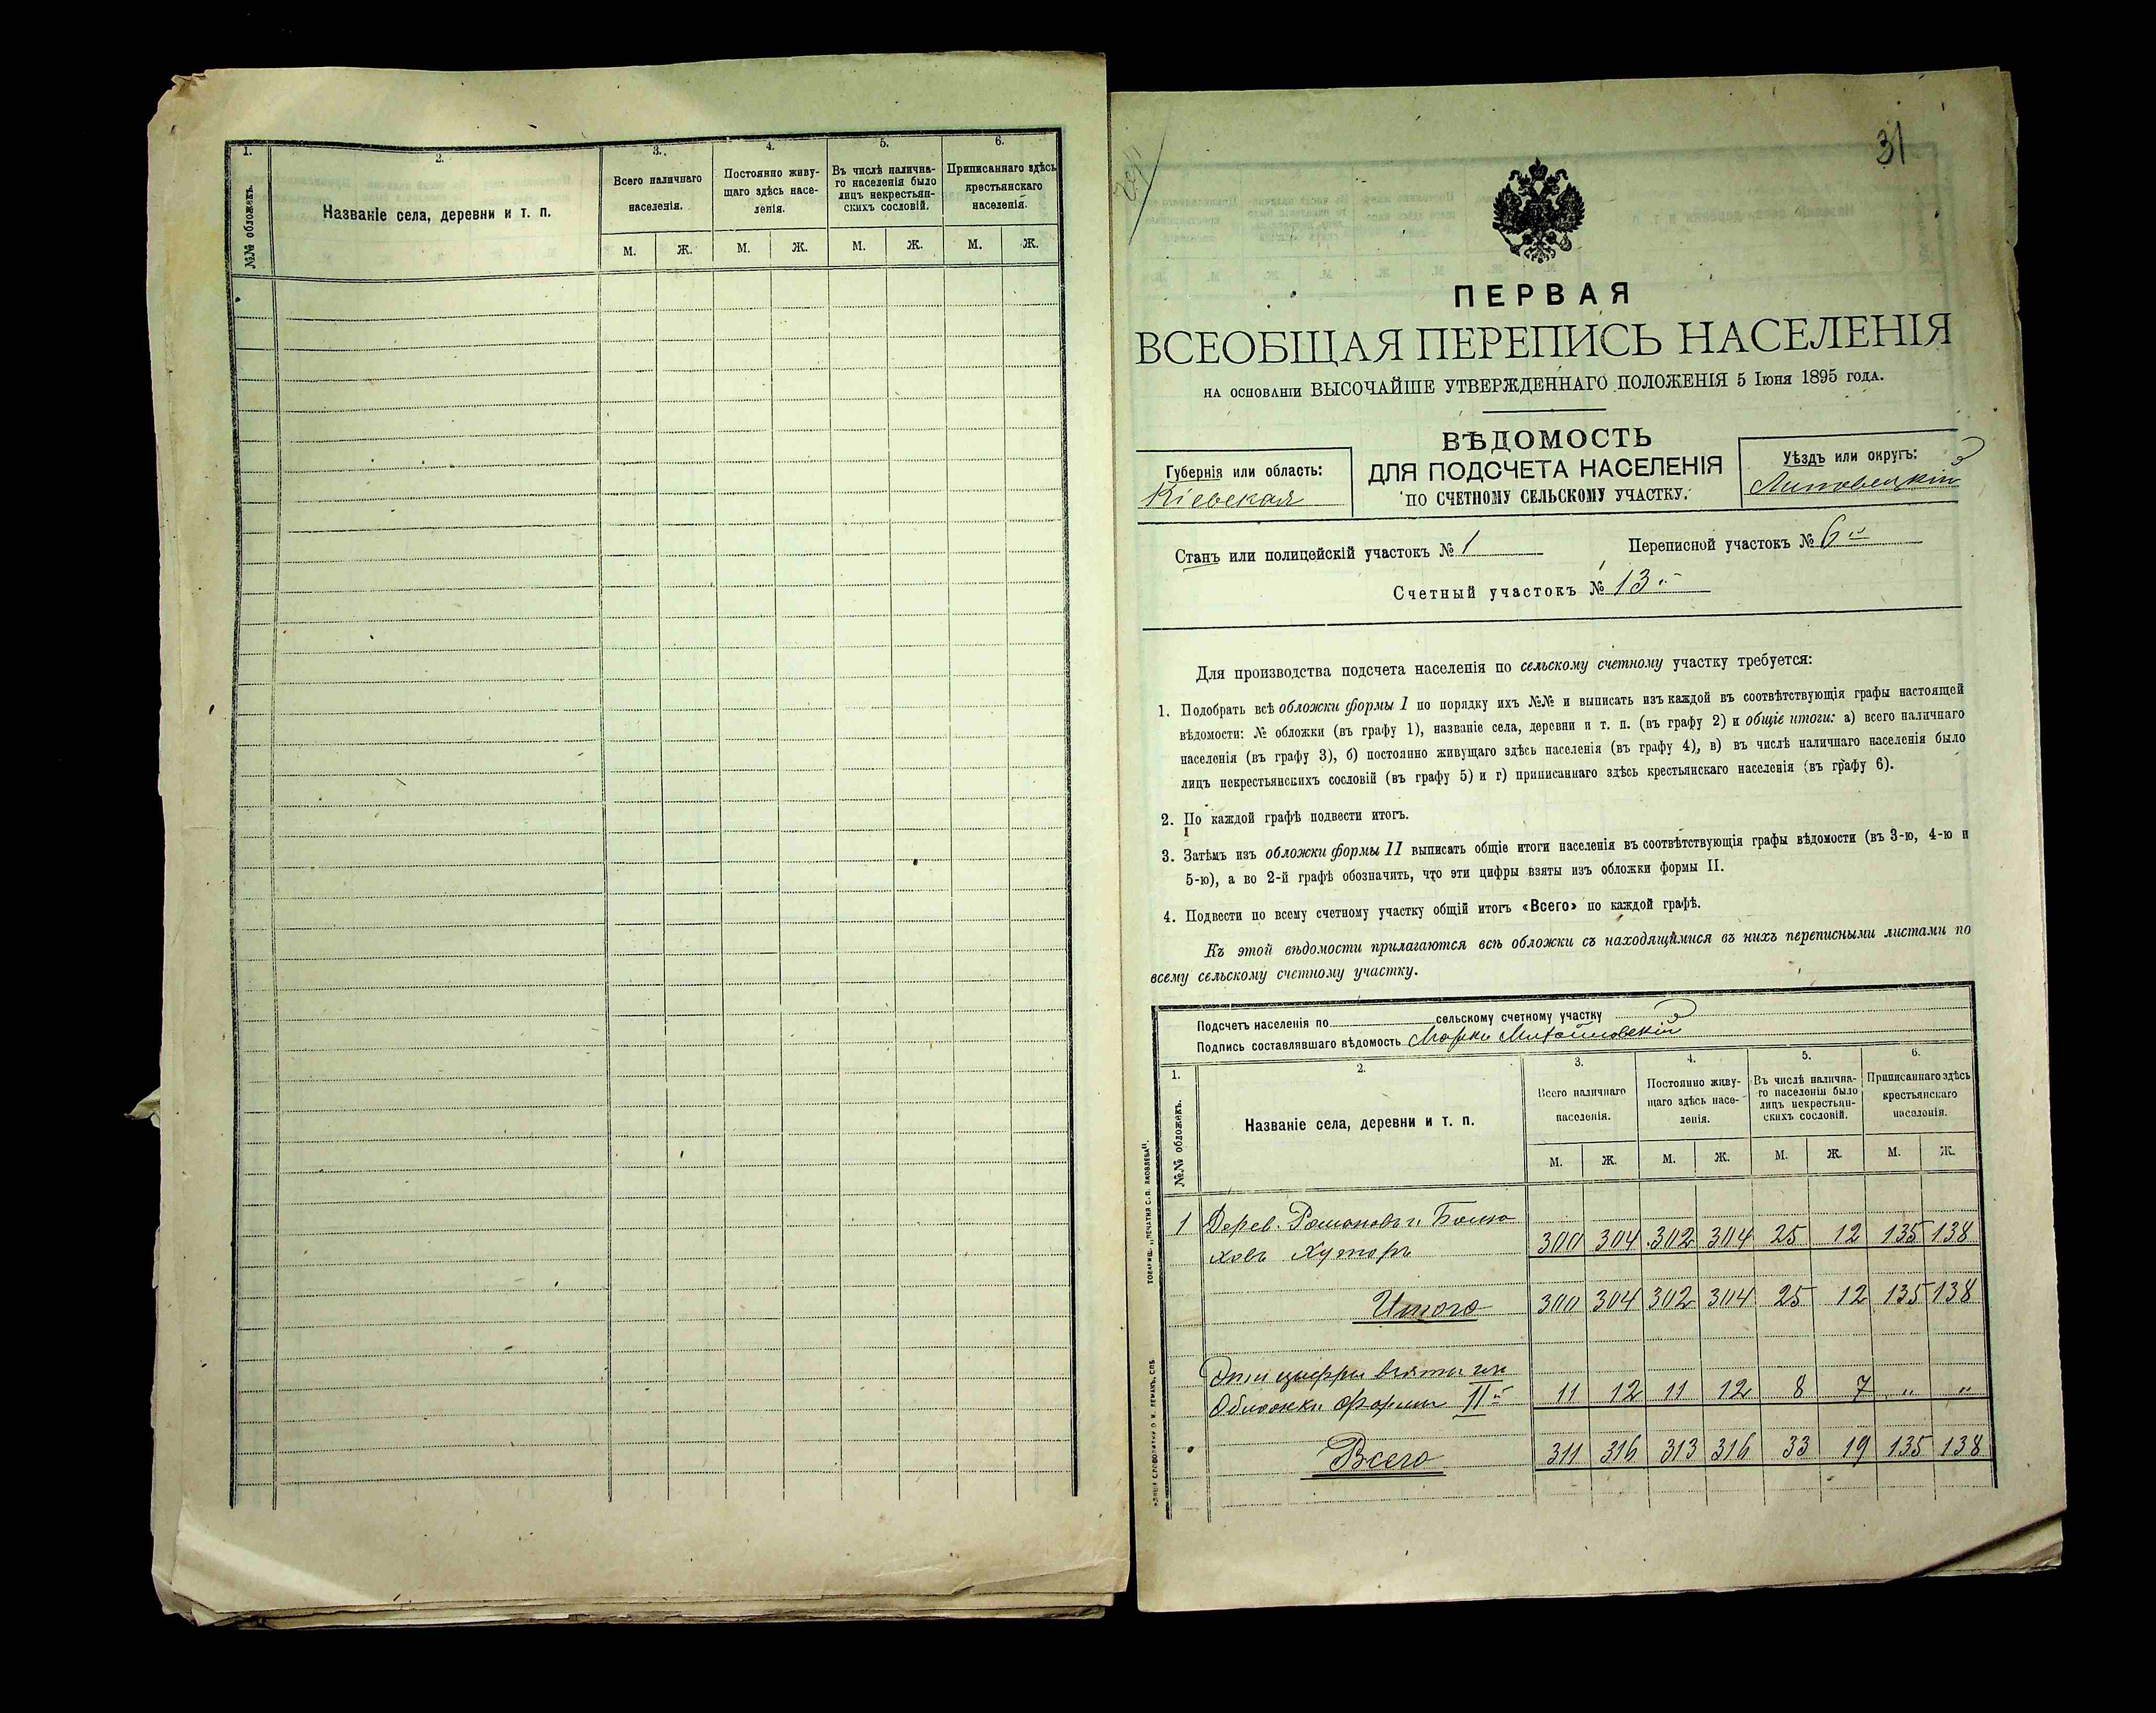 1.
2.
3.
4.
5.
6.
№№ обложекъ.
Названіе села, деревни и т. п.
Всего наличнаго
населенія.
Постоянно живу-
щаго здѣсь насе-
ленія.
Въ числѣ налична-
го населенія было
лицъ некрестьян-
скихъ сословій.
Приписаннаго здѣсь
крестьянскаго
населенія.
М. Ж. М. Ж. М. Ж. М. Ж.
31
ПЕРВАЯ
ВСЕОБЩАЯ ПЕРЕПИСЬ НАСЕЛЕНІЯ
НА ОСНОВАНІИ ВЫСОЧАЙШЕ УТВЕРЖДЕННАГО ПОЛОЖЕНІЯ 5 Іюня 1895 ГОДА.
ВѢДОМОСТЬ
ДЛЯ ПОДСЧЕТА НАСЕЛЕНІЯ
ПО СЧЕТНОМУ СЕЛЬСКОМУ УЧАСТКУ.
Губернія или область:
Кіевская
Уѣздъ или округъ:
Липовецкій
Станъ или полицейскій участокъ № 1
Переписной участокъ № 6й
Счетный участокъ № 13й
Для производства подсчета населенія по сельскому счетному участку требуется:
1. Подобрать всѣ обложки формы I по порядку ихъ №№ и выписать изъ каждой въ соотвѣтствующія графы настоящей
вѣдомости: № обложки (въ графу 1), названіе села, деревни и т. п. (въ графу 2) и общіе итоги: а) всего наличнаго
населенія (въ графу 3), б) постоянно живущаго здѣсь населенія (въ графу 4), в) въ числѣ наличнаго населенія было
лицъ некрестьянскихъ сословій (въ графу 5) и г) приписаннаго здѣсь крестьянскаго населенія (въ графу 6).
2. По каждой графѣ подвести итогъ.
3. Затѣмъ изъ обложки формы II выписать общіе итоги населенія въ соотвѣтствующія графы вѣдомости (въ 3-ю, 4-ю и
5-ю), а во 2-й графѣ обозначить, что эти цифры взяты изъ обложки формы II.
4. Подвести по всему счетному участку общій итогъ «Всего» по каждой графѣ.
Къ этой вѣдомости прилагаются всѣ обложки съ находящимися въ нихъ переписными листами по
всему сельскому счетному участку.
Подсчетъ населенія по сельскому счетному участку
Подпись составлявшаго вѣдомость Марко Михайловскій
1.
2.
3.
4.
5.
6.
№№ обложекъ.
Названіе села, деревни и т. п.
Всего наличнаго
населенія.
Постоянно живу-
щаго здѣсь насе-
ленія.
Въ числѣ налична-
го населенія было
лицъ некрестьян-
скихъ сословій.
Приписаннаго здѣсь
крестьянскаго
населенія.
М. Ж. М. Ж. М. Ж. М. Ж.
1 Дерев. Романовъ
ховъ Хуторъ 300 304 302 304 25 12 135 138
Итого 300 304 302 304 25 12 135 138
Эти цыфри взяти изъ
Обложки формы IIй 11 12 11 12 8 7 " "
Всего 311 316 313 316 33 19 135 138